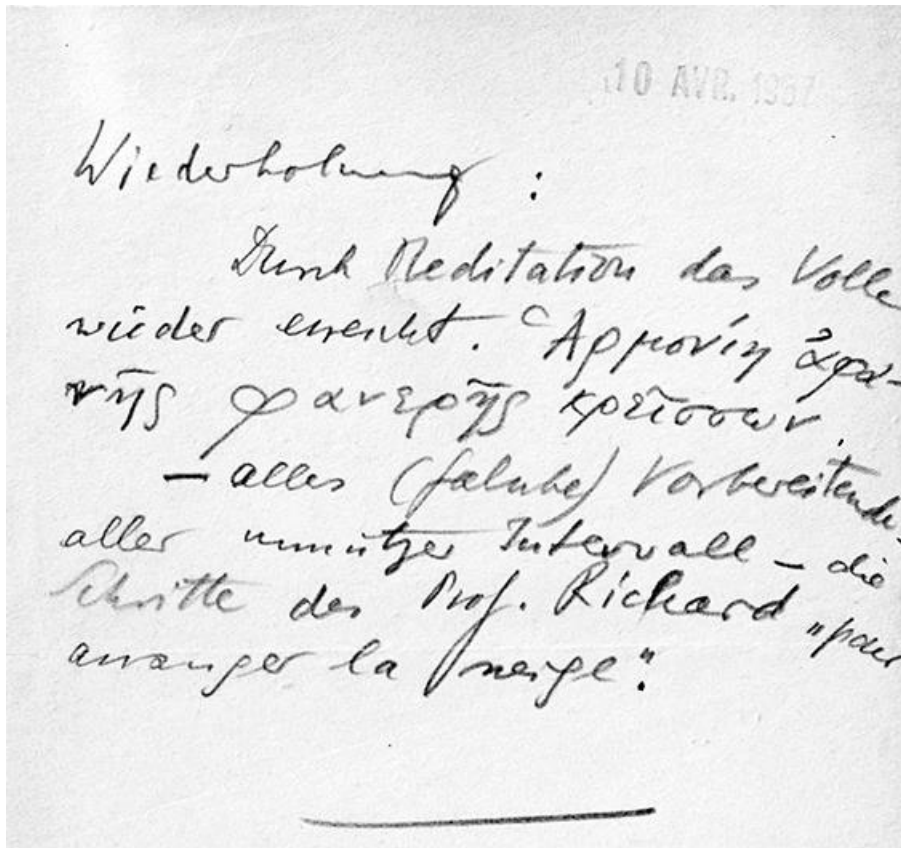 10 AVR. 1967
Wiederholung :
Durch Meditation das Volle
wieder erreicht. Ἁρμονίη ἀφα-
νὴς φανερῆς κρείσσων.
– alles (falsche) Vorbereitende,
aller unnützer Intervall – die
Schritte des Prof. Richard „pour
arranger la neige“.